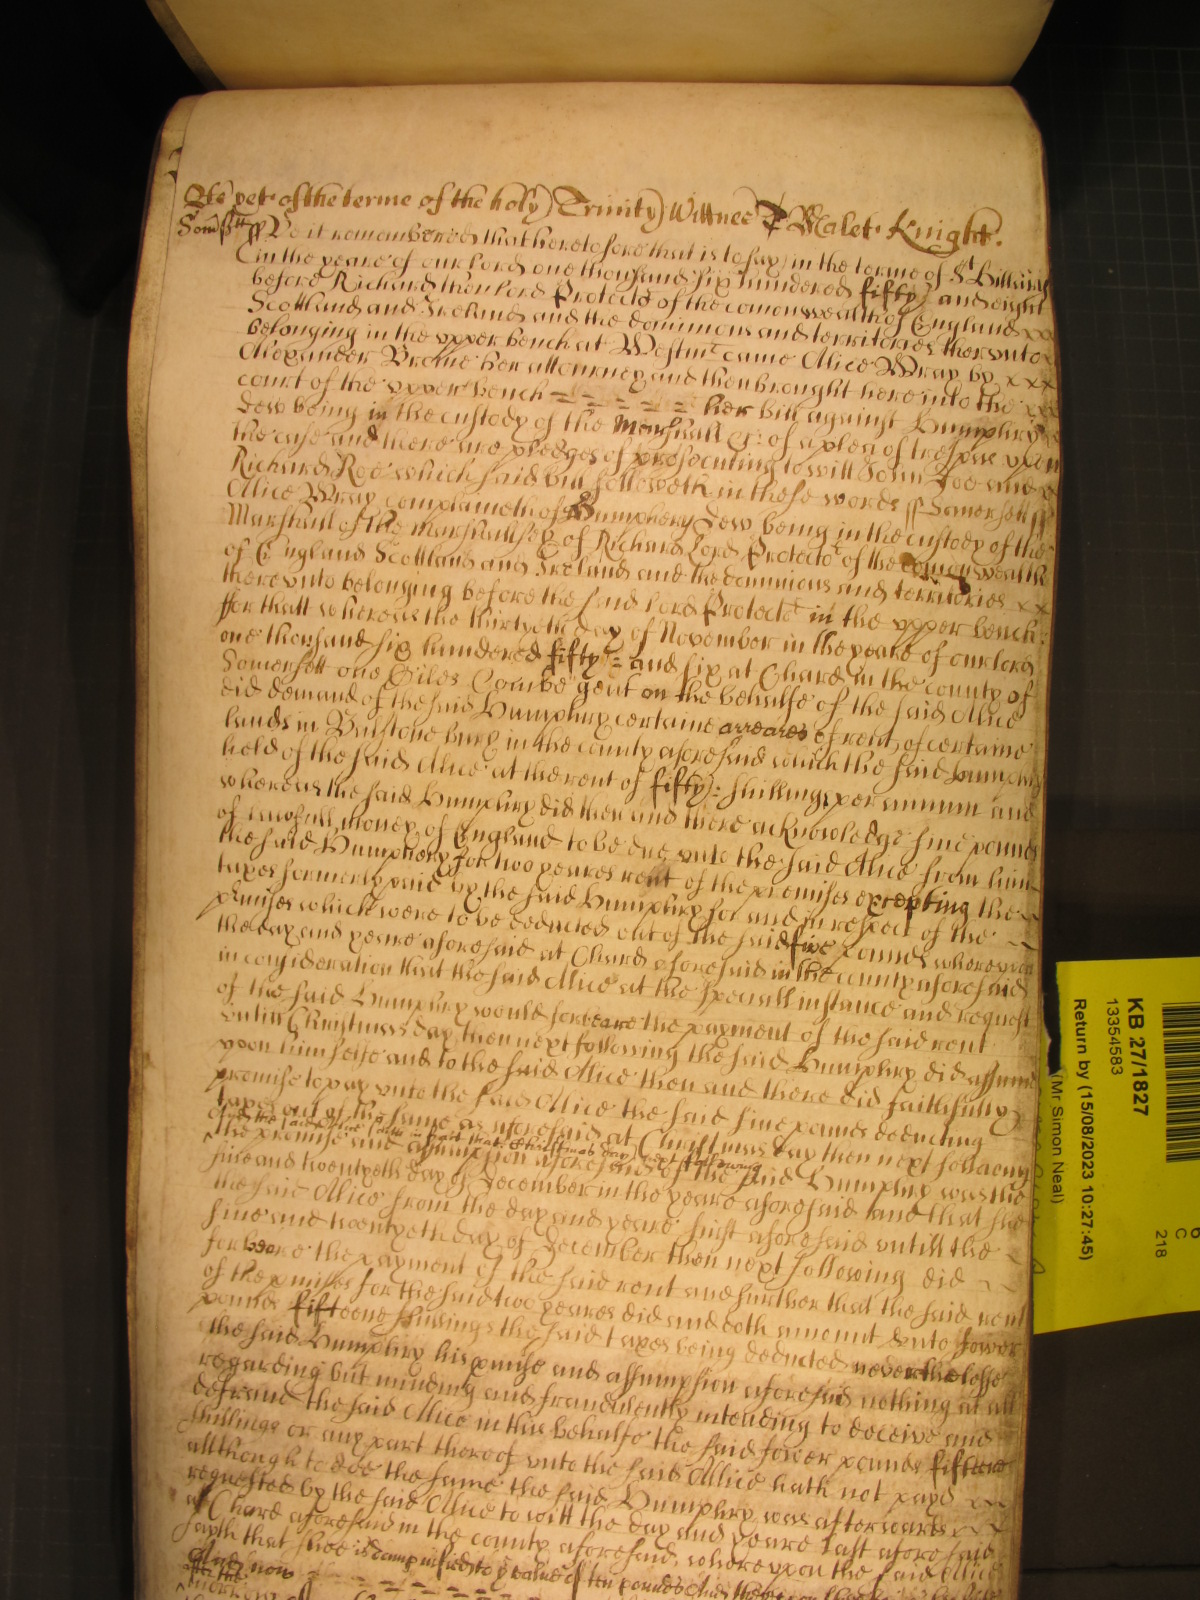 yet of the terme of the holy Trinity Wittnes T Malet Knight.
Somsett ss Be it remembered that heretofore that is to say in the terme of St Hillary
in the yeare of our lord one thousand six hundered fifty and eight
before Richard then lord Protector of the comonwealth of England
Scotland and Ireland and the dominions and territories therunto
belonging in the upper bench at Westmr came Alice Wray by
Alexander Brome her attourney and then brought here into the
court of the upper bench = = = = = her bill against Humphry
Dew being in the custody of the Marshall &c: of a plea of trespas upon
the case and there are pledges of prosecuting to witt John Doe and
Richard Roe which said bill followeth in these words ss Somersett ss
Alice Wray complaineth of Humphery Dew being in the custody of the
Marshall of the marshallsey of Richard Lord Protector of the comonwealth
of England Scotland and Ireland and the dominions and territories
thereunto belonging before the said lord Protector in the upper bench:
ffor thatt whereas the thirtyeth day of November in the yeare of our lord
one thousand six hundered fifty = and six at Chard in the county of
Somersett one Giles Combe gent on the behalfe of the said Alice
did demand of the said Humphry certaine arreares of rent of certaine
lands in Bulstone bury in the county aforesaid which the said Humphry
held of the said Alice at the rent of fifty: shillings per annum and
whereas the said Humphry did then and there acknowledge five pounds
of lawfull money of England to be due unto the said Alice from him
the said Humphery for two yeares rent of the premises excepting the
taxes formerly paid by the said Humphry for and in respect of the
pmises which were to be deducted out of the said five pounds whereupon
the day and yeare aforesaid at Chard aforesaid in the county aforesaid
in consideration that the said Alice at the speciall instance and request
of the said Humphry would forbeare the payment of the said rent
untill Christmas day then next following the said Humphry did assume
upon himselfe and to the said Alice then and there did faithfully
promise to pay unto the said Alice the said five pounds deducting
taxes out of the same as aforesaid at Christmas day then next following
And the said Alice saith in fact that Christmas day next following
the promise and assumption aforesaid of the said Humphry was the
five and twentyeth day of December in the yeare aforesaid and that she
the said Alice from the day and yeare first aforesaid untill the
five and twentyeth day of December then next following did
forbeare the payment of the said rent and further that the said rent
of the pmises for the said two yeares did and doth amount unto fower
pounds fifteene shillings the said taxes being deducted neverthelesse
the said Humphry his pmise and assumpsion aforesaid nothing at all
regarding but minding and fraudulently intending to deceive and
defraud the said Alice in this behalfe the said fower pounds fifteene
shillings or any part thereof unto the said Alice hath not payd
allthough to doe the same the said Humphry was afterwards
requested by the said Alice to witt the day and yeare last aforesaid
at Chard aforesaid in the county aforesaid, whereupon the said Alice
sayth that shee is damnified to ye value of ten pounds And
And now
KB 27/1827
13354583
Return by (15/08/2023 10:27:45)
(Mr Simon Neal)
C
218